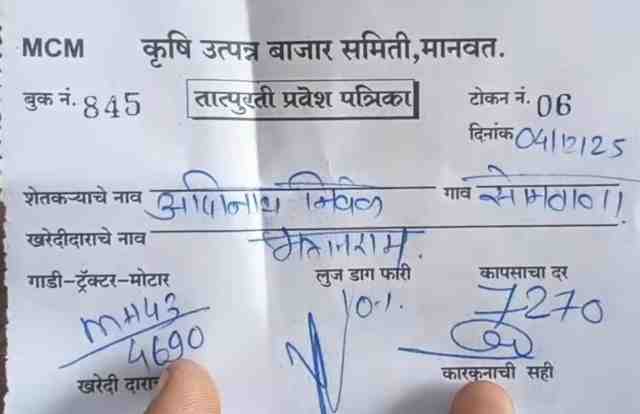 MCM कृषि उत्पन्न बाजार समिती,मानवत.
बुक नं. 845 तात्पुरती प्रवेश पत्रिका टोकन नं. 06
दिनांक 04/12/25
शेतकऱ्याचे नाव गाव
खरेदीदाराचे नाव
गाडी-ट्रॅक्टर-मोटार लुज डाग फारी कापसाचा दर
MH43 10% 7270
4690
खरेदी कारकुनाची सही